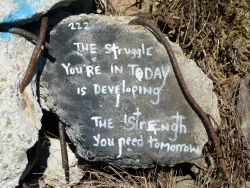 222
THE STRUGGLE
YOU'RE IN TODAY
IS DEVELOPING
THE STRENGTH
YOU NEED TOMORROW